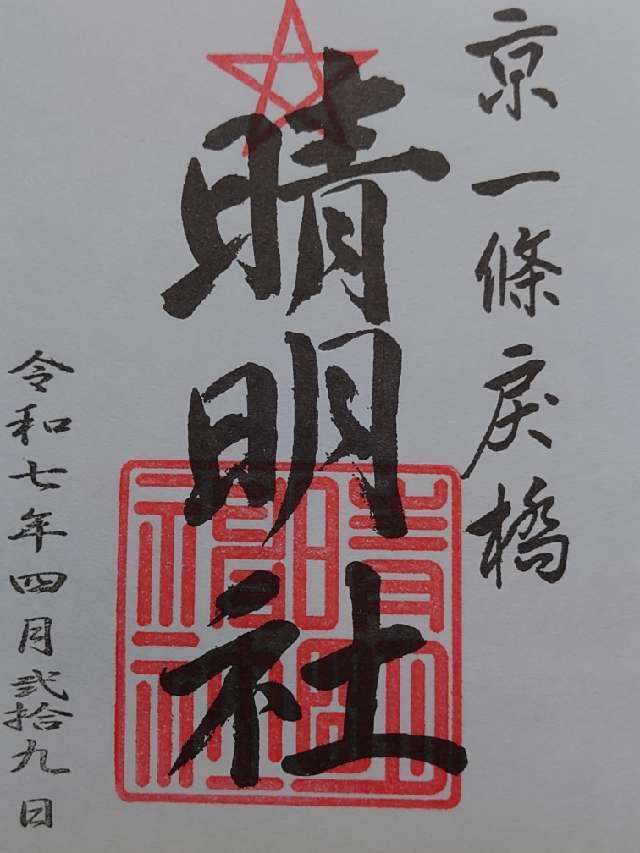 京一條戻橋
晴明社
令和七年四月弐拾九日